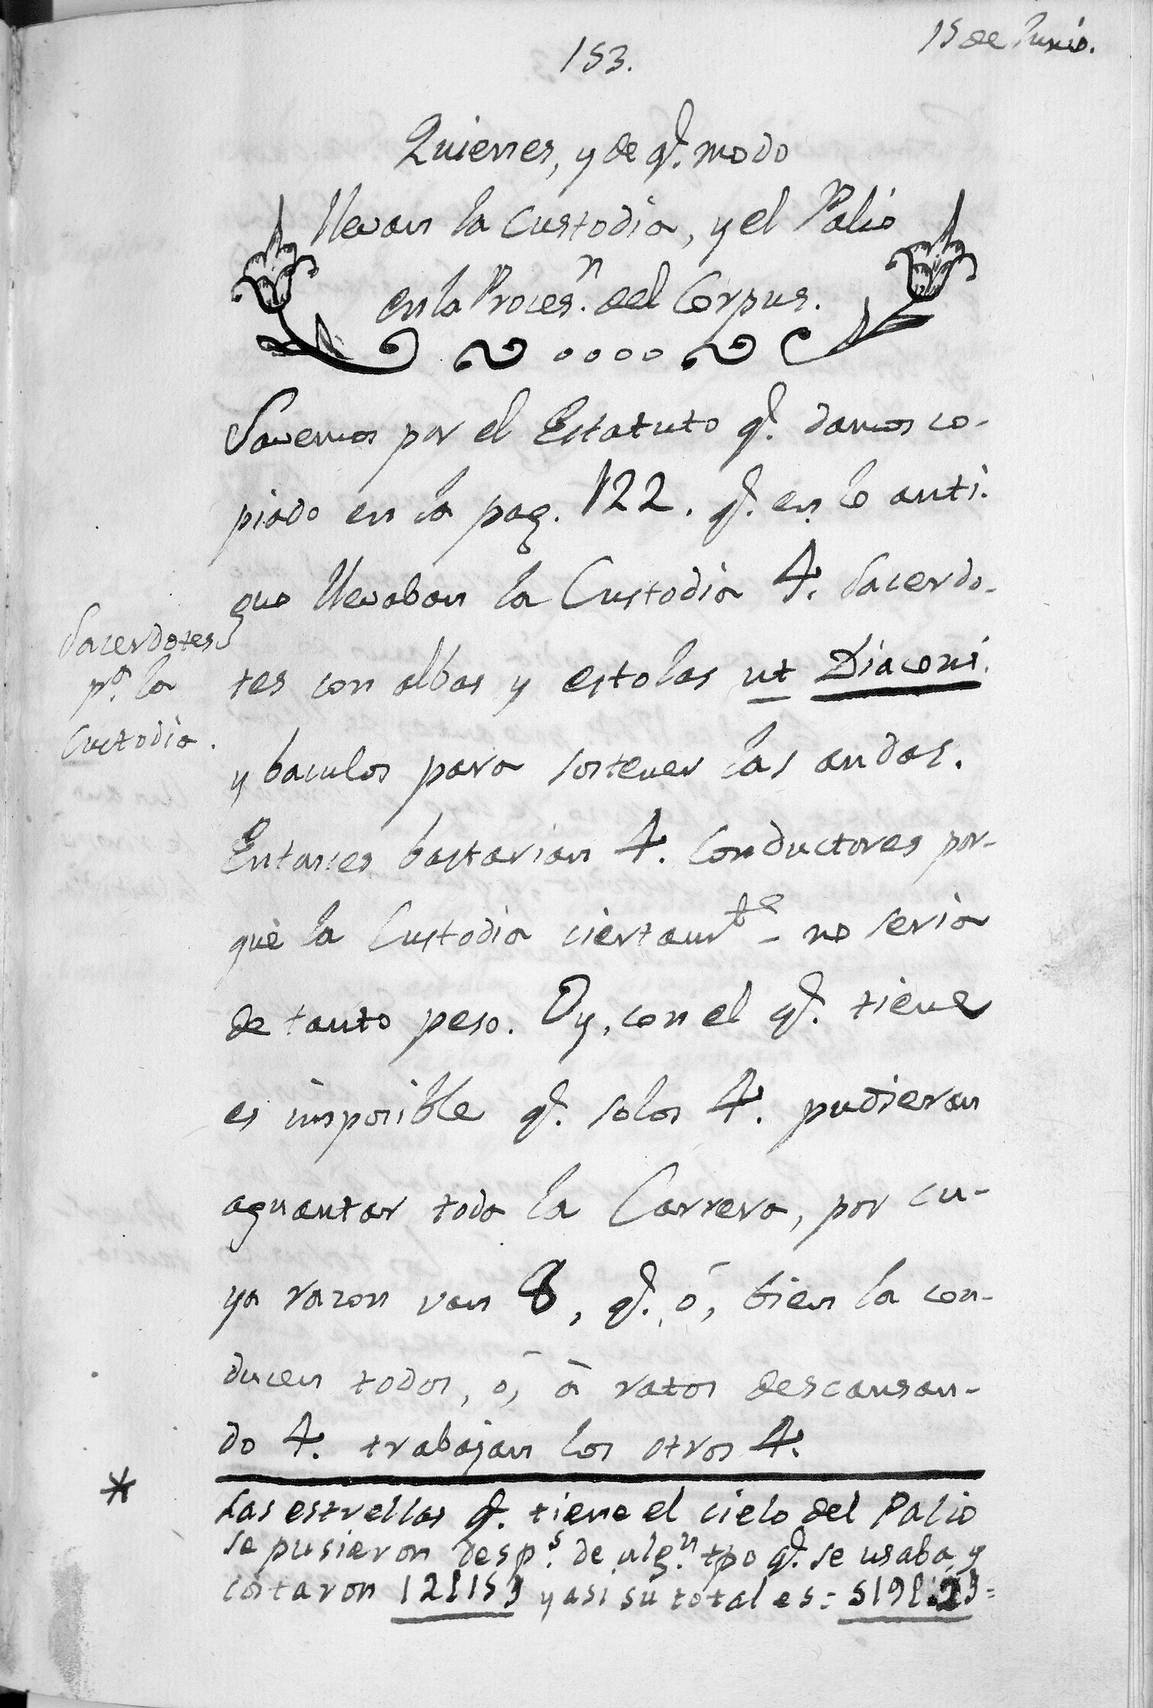 15 de Junio.
153.
Quienes, y de q.e modo
llevan la Custodia, y el Palio
en la Proces.n del Corpus.
Savemos por el Estatuto q.e damos co-
piado en la pag. 122. q.e en lo anti-
guo llevaban la Custodia 4. Sacerdo-
tes con albas y estolas ut Diaconi.
y baculos para sostener las andas.
Entonces bastarian 4. Conductores por-
què la Custodia ciertam.te no seria
de tanto peso. Oy, con el q.e tiene
es imposible q.e solos 4. pudieran
aguantar toda la Carrera, por cu-
ya razon van 8, q.e ó, bien la con-
ducen todos, ó, à ratos descansan-
do 4. trabajan los otros 4.
Sacerdotes
p.a la
Custodia.
* Las estrellas q.e tiene el cielo del Palio
se pusieron desp.s de alg.n tpo q.e se usaba, y
costaron y asi su total es=